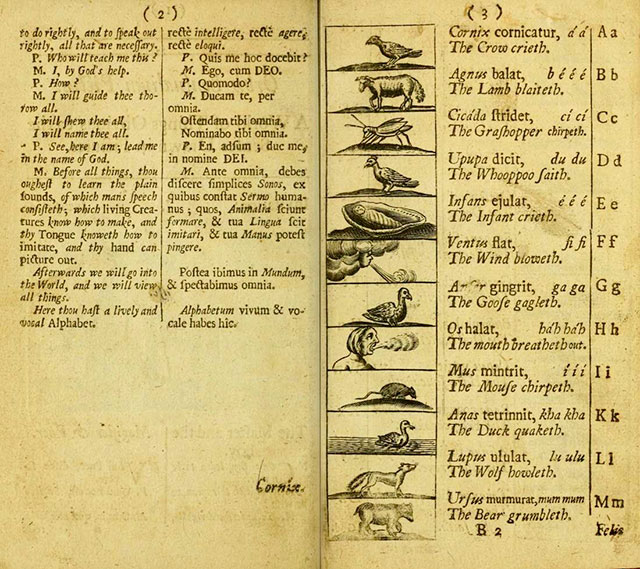 ( 2 )
to do rightly, and to speak out
rightly, all that are necessary.
P. Who will teach me this?
M. I, by God's help.
P. How?
M. I will guide thee tho-
row all.
I will shew thee all,
I will name thee all.
P. See, here I am; lead me
in the name of God.
M. Before all things, thou
oughest to learn the plain
sounds, of which mans speech
consisteth; which living Crea-
tures know how to make, and
thy Tongue knoweth how to
imitate, and thy hand can
picture out.
Afterwards we will go into
the World, and we will view
all things.
Here thou hast a lively and
vocal Alphabet.
rectè intelligere, rectè agere,
rectè eloqui.
P. Quis me hoc docebit?
M. Ego, cum DEO.
P. Quomodo?
M. Ducam te, per
omnia.
Ostendam tibi omnia,
Nominabo tibi omnia.
P. En, adsum; duc me,
in nomine DEI.
M. Ante omnia, debes
discere simplices Sonos, ex
quibus constat Sermo huma-
nus; quos, Animalia sciunt
formare, & tua Lingua scit
imitari, & tua Manus potest
pingere.
Postea ibimus in Mundum,
& spectabimus omnia.
Alphabetum vivum & vo-
cale habes hîc.
Cornix
( 3 )
Cornix cornicatur, á á A a
The Crow crieth.
Agnus balat, b é é é B b
The Lamb blaiteth.
Cicáda stridet, cí cí C c
The Grashopper chirpeth.
Upupa dicit, du du D d
The Whooppoo saith.
Infans ejulat, é é é E e
The Infant crieth.
Ventus flat, fi fi F f
The Wind bloweth.
gingrit, ga ga G g
The Goose gagleth.
Os halat, há'h há'h H h
The mouth breatheth out.
Mus mintrit, í í í I i
The Mouse chirpeth.
Anas tetrinnit, kha kha K k
The Duck quaketh.
Lupus ululat, lu ulu L l
The Wolf howleth.
Ursus murmurat, mum mum M m
The Bear grumbleth.
B 2 Felis